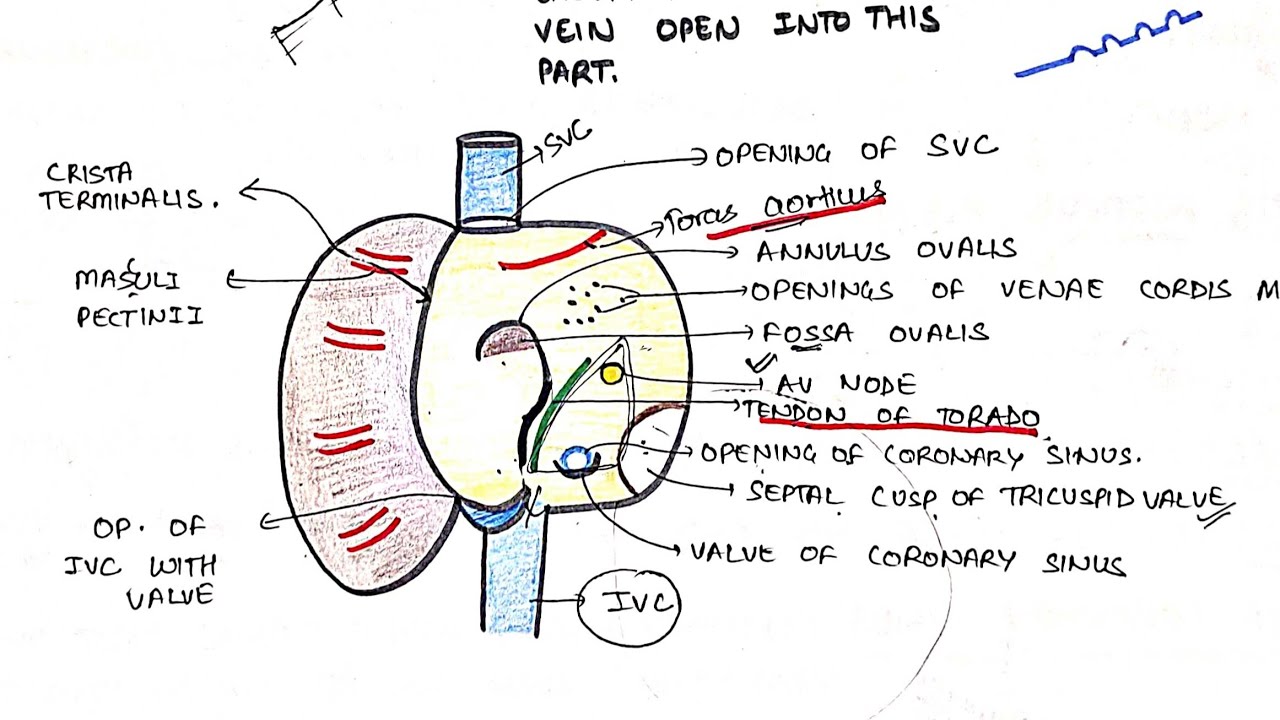 VEIN OPEN INTO THIS
PART.
SVC
OPENING OF SVC
CRISTA
TERMINALIS.
Toras aorticus
ANNULUS OVALIS
MASULI
PECTINII
OPENINGS OF VENAE CORDIS M
FOSSA OVALIS
AV NODE
TENDON OF TORADO
OPENING OF CORONARY SINUS.
SEPTAL CUSP OF TRICUSPID VALVE
OP. OF
IVC WITH
VALVE
VALVE OF CORONARY SINUS
IVC